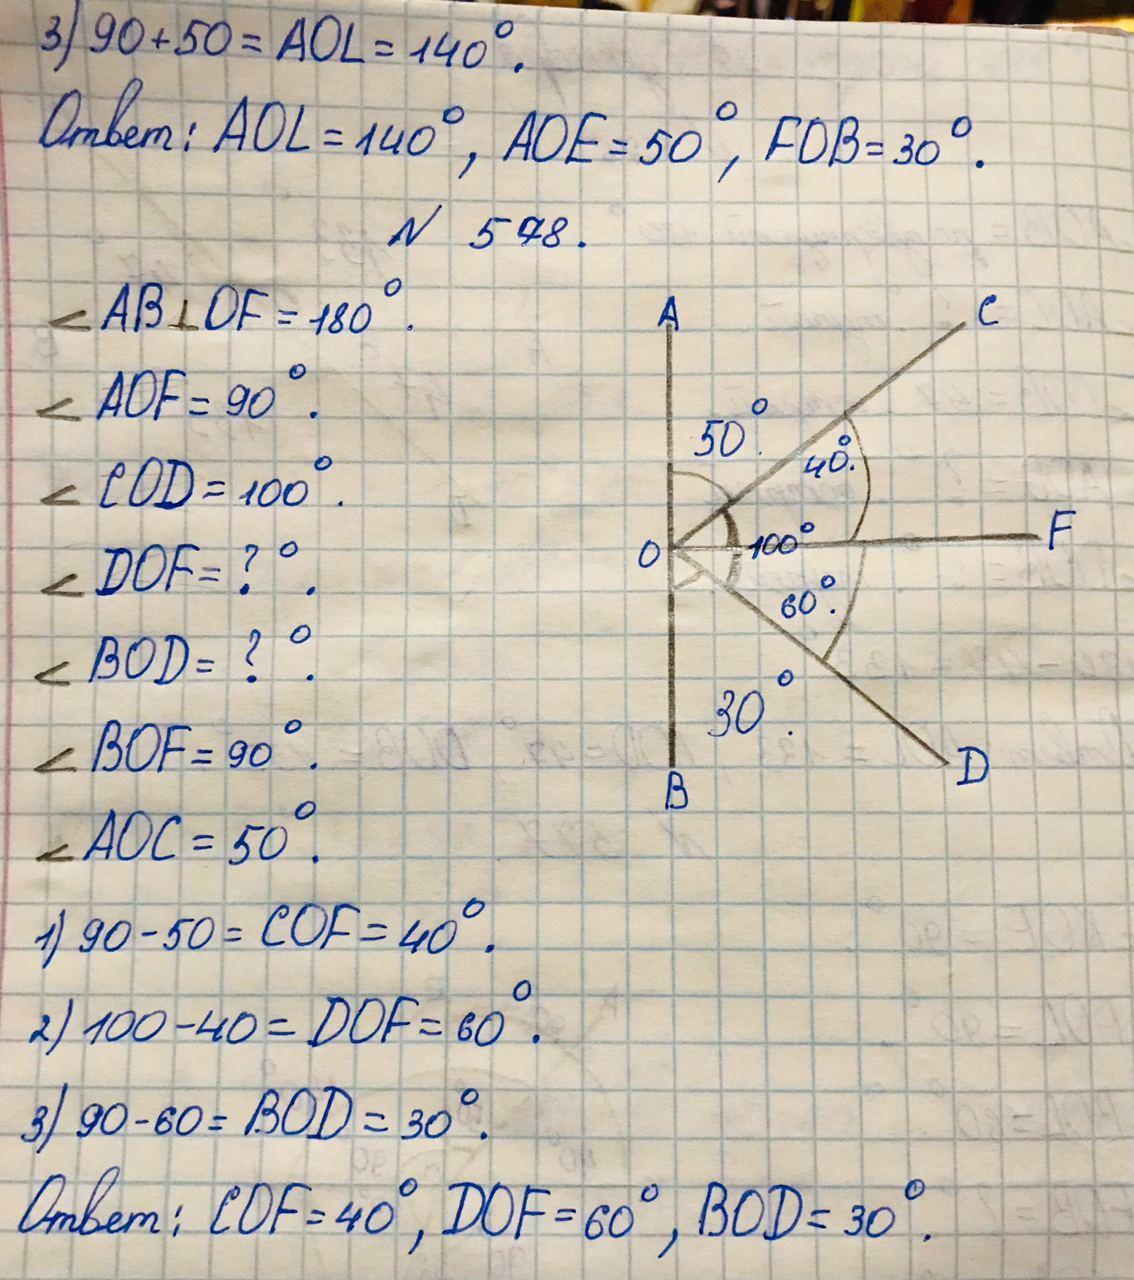 3) 90+50 = AOL = 140°.
Ответ: AOL = 140°, AOE = 50°, FOB = 30°.
N 578.
∠ AB⊥OF = 180°.
∠ AOF = 90°.
∠ COD = 100°.
∠ DOF = ?°.
∠ BOD = ?°.
∠ BOF = 90°.
∠ AOC = 50°.
A
C
50°.
40°.
O
100°
F
60°.
30°.
B
D
1) 90-50 = COF = 40°.
2) 100-40 = DOF = 60°.
3) 90-60 = BOD = 30°.
Ответ: COF = 40°, DOF = 60°, BOD = 30°.